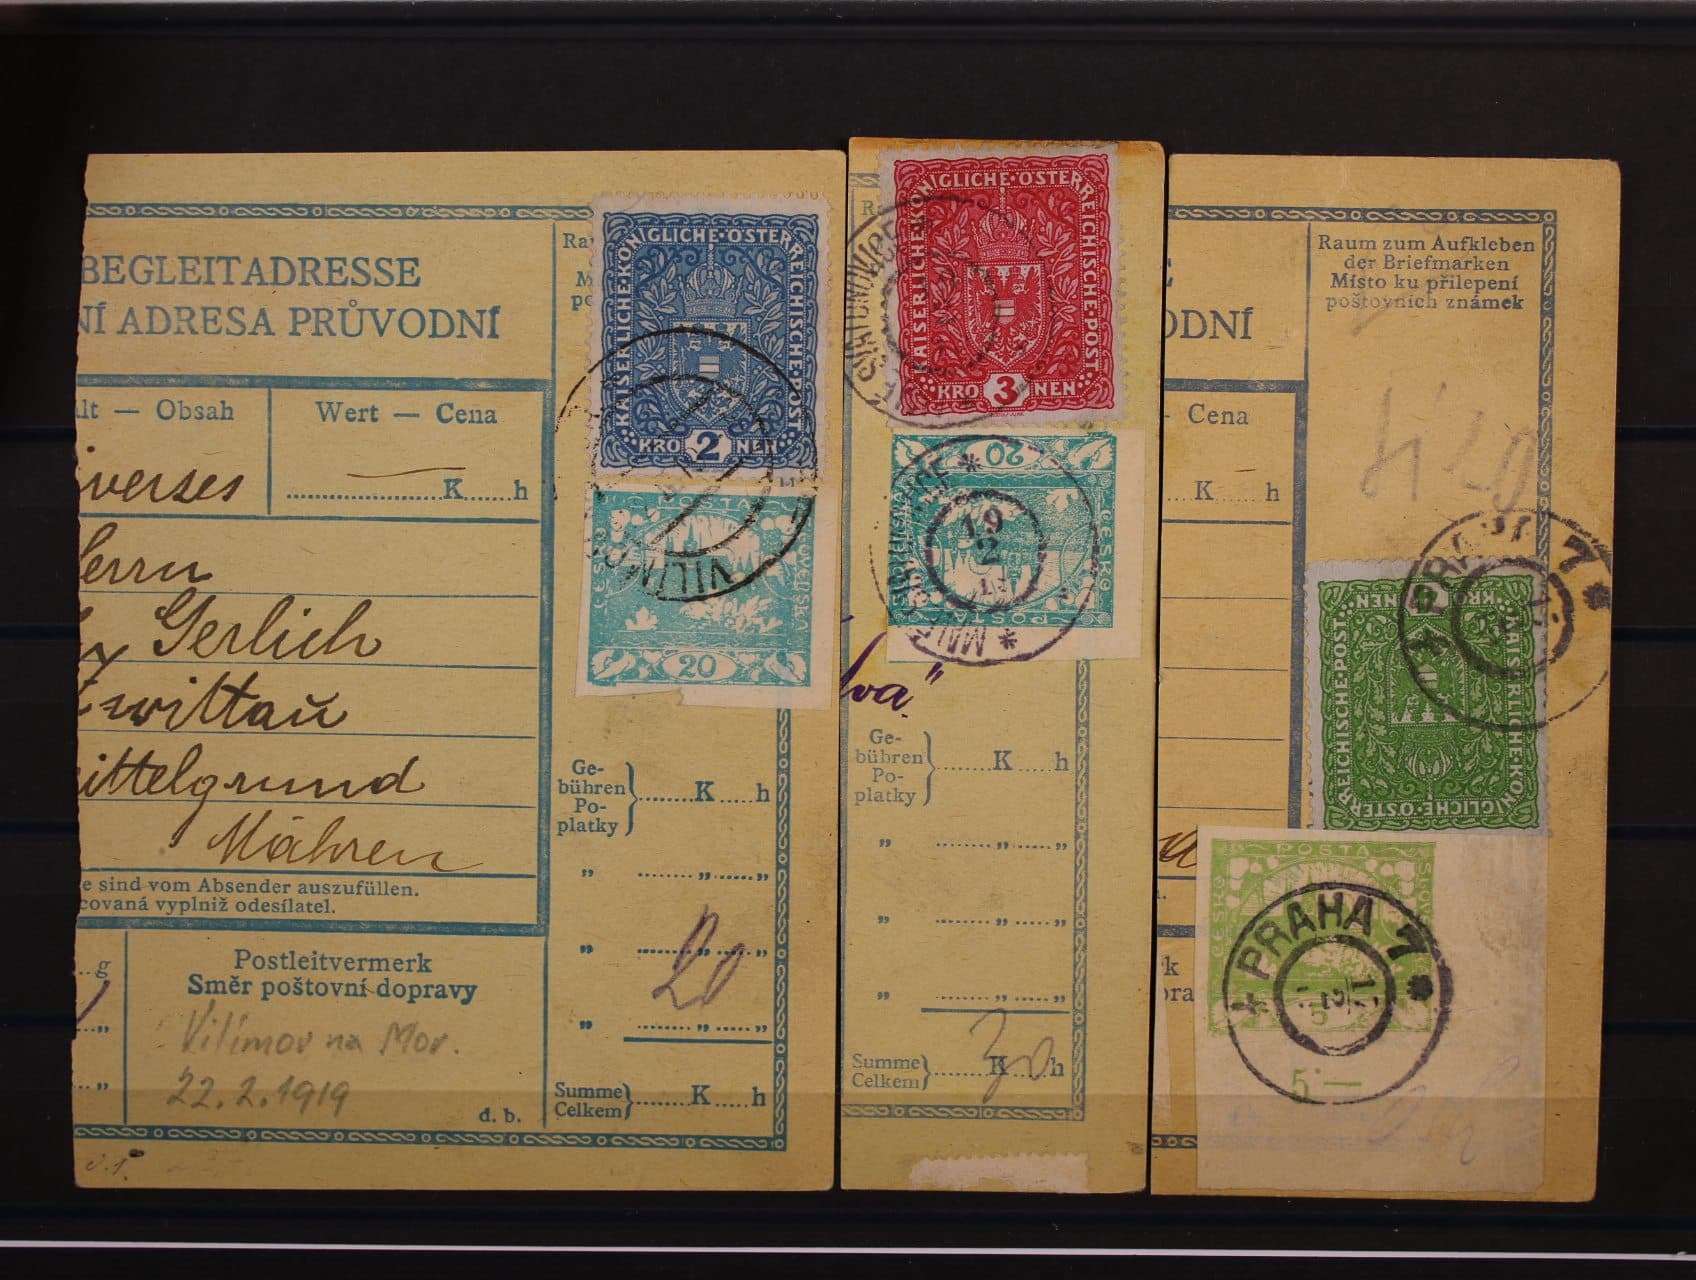 BEGLEITADRESSE
NÍ ADRESA PRŮVODNÍ
lt — Obsah
Wert — Cena
K h
Herrn
Gerlich
Zwittau
Mittelgrund
Mähren
e sind vom Absender auszufüllen.
covaná vyplniž odesílatel.
g
Postleitvermerk
Směr poštovní dopravy
Vilímov na Mor.
22.2.1919
d. b.
KAISERLICHE·KÖNIGLICHE·ÖSTERREICHISCHE·POST
KRO 2 NEN
POSTA
ČESKO
SLOVENSKÁ
20
VILÍMOV
Ge-
bühren
Po-
platky
K h
" " "
" " "
20
" " "
Summe
Celkem
K h
KAISERLICHE·KÖNIGLICHE·ÖSTERREICHISCHE·POST
KRO 3 NEN
20
ČESKO
POSTA
19
2
Ge-
bühren
Po-
platky
K h
" " "
" " "
" " "
Summe
Celkem
K h
DNÍ
Cena
K h
Raum zum Aufkleben
der Briefmarken
Místo ku přilepení
poštovních známek
PRAHA 7
KAISERLICHE·KÖNIGLICHE·ÖSTERREICHISCHE·POST
KRO NEN
POSTA
ČESKO
PRAHA 7
5·—